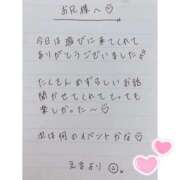 お兄様へ♡
今日は遊びに来てくれて
ありがとうございました
たくさんめずらしいお話
聞かせてくれてとっても
楽しかった〜♡
次は何のイベントかな♡
より